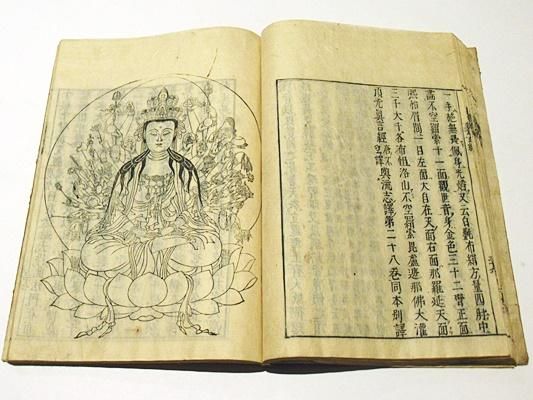 一手施無異佩身光焰又云白㲲布絹方量四肘中
畫不空羂索十一面觀世音身金色三十二臂正面
熙怡眉間一目左面大自在天面右面那羅延天面
三千大千各布怛洛山不空羂索毘盧遮那佛大灌
頂光眞言經唐不空譯與流志譯第二十八卷同本別譯